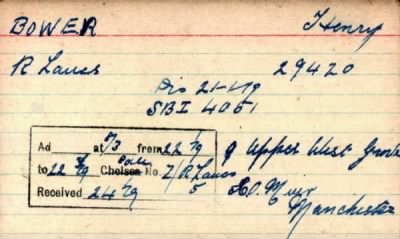 BOWER Henry
R Lancs 29420
Dis 21-1-19
SBI 4051
Ad at 5/3 from 22 1/19
to 22 /19 Chelsea No. 7/R Lancs
Received 24 /19 5
9 Upper West Grove
Manchester